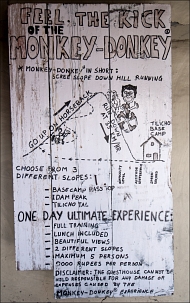 FEEL THE KICK
OF THE
MONKEY-DONKEY
A "MONKEY-DONKEY" IN SHORT:
SCREE SLOPE DOWN HILL RUNNING
GO UP ON HORSEBACK
TILICHO
BASE
CAMP
CHOOSE FROM 3
DIFFERENT SLOPES:
- BASECAMP PASS TOP
- EDAM PEAK
- TILICHO TAL
ONE DAY ULTIMATE EXPERIENCE:
- FULL TRAINING
- LUNCH INCLUDED
- BEAUTIFUL VIEWS
- 2 DIFFERENT SLOPES
- MAXIMUM 5 PERSONS
- 5000 RUPEES PER PERSON
DISCLAIMER: THE GUESTHOUSE CANNOT BE
HELD RESPONSIBLE FOR ANY DAMAGE OR
EXPENSES CAUSED BY THE
"MONKEY-DONKEY" EXPERIENCE